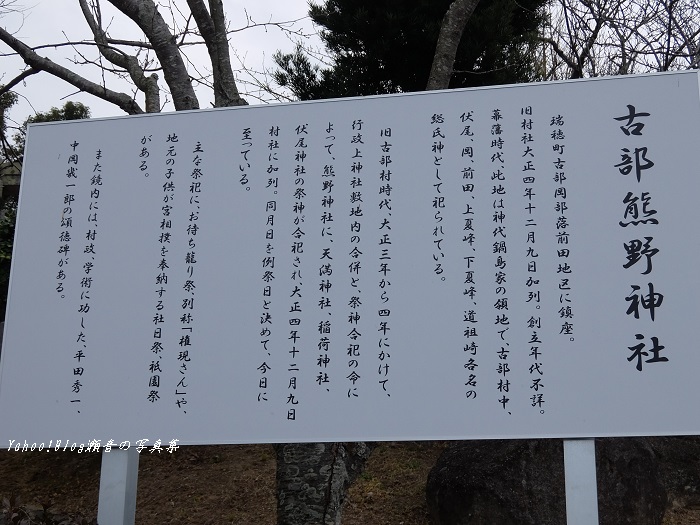 古部熊野神社
瑞穂町古部岡部落前田地区に鎮座。
旧村社大正四年十二月九日加列。創立年代不詳。
幕藩時代、此地は神代鍋島家の領地で、古部村中、
伏尾、岡、前田、上夏峰、下夏峰、道祖崎各名の
総氏神として祀られている。
旧古部村時代、大正三年から四年にかけて、
行政上神社敷地内の合併と、祭神合祀の令に
よって、熊野神社に、天満神社、稲荷神社、
伏尾神社の祭神が合祀され、大正四年十二月九日
村社に加列。同月日を例祭日と決めて、今日に
至っている。
主な祭祀に、お待ち籠り祭、別称「権現さん」や、
地元の子供が宮相撲を奉納する社日祭、祇園祭
がある。
また境内には、村政、学術に功した、平田秀一、
中岡議一郎の頌徳碑がある。
Yahoo!Blog瀬音の写真集